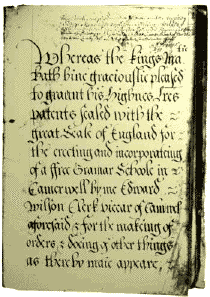 Whereas the kings Ma tie
hath bine graciouslie pleased
to graunt his Highnes Lres
patents sealed with the
great Seale of England for
the erecting and incorporating
of a ffree Gramar Schoole in
Camerwell by me Edward
Wilson Clerk viccar of Camerwell
aforesaid & for the making of
orders & doeing of other things
as thereby maie appeare,